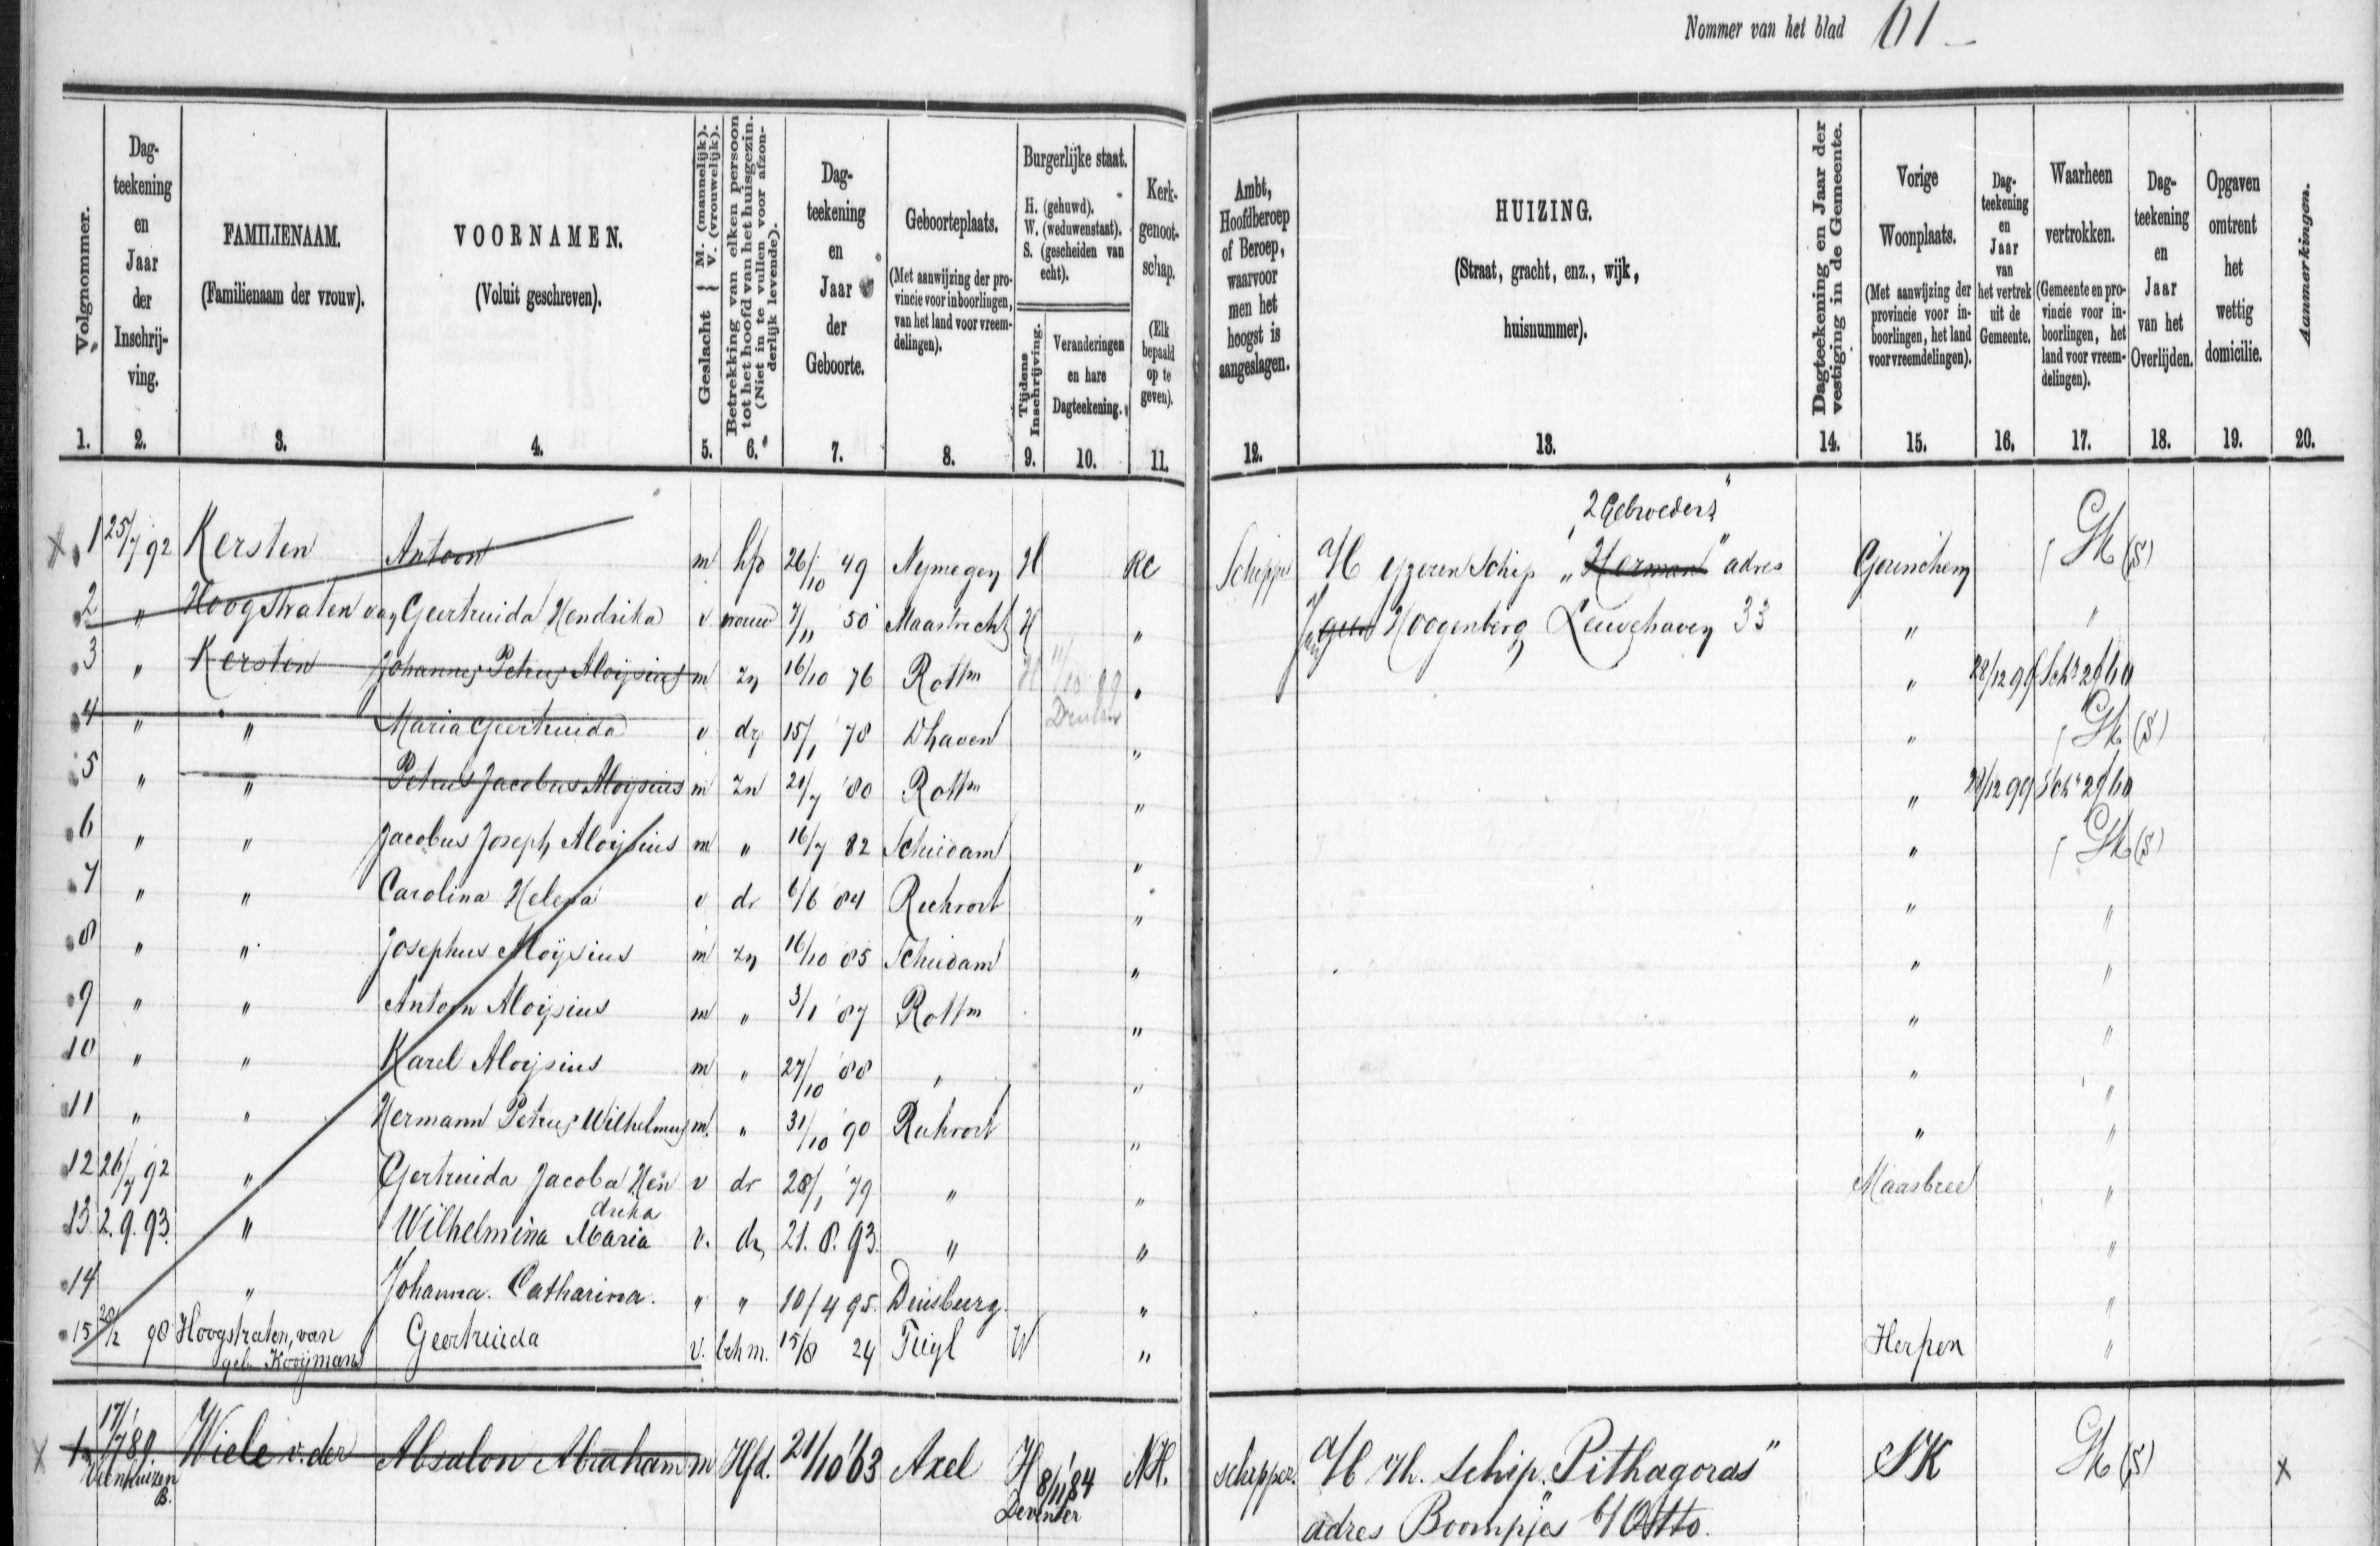 Nommer van het blad 61
Volgnommer.
Dag-teekening en Jaar der Inschrij-ving.
FAMILIENAAM. (Familienaam der vrouw).
VOORNAMEN. (Voluit geschreven).
Geslacht { M. (mannelijk). V. (vrouwelijk).
Betrekking van elken persoon tot het hoofd van het huisgezin. (Niet in te vullen voor afzon-derlijk levende).
Dag-teekening en Jaar der Geboorte.
Geboorteplaats. (Met aanwijzing der pro-vincie voor inboorlingen, van het land voor vreem-delingen).
Burgerlijke staat. H. (gehuwd). W. (weduwenstaat). S. (gescheiden van echt).
Tijdens Inschrijving.
Veranderingen en hare Dagteekening.
Kerk-genoot-schap. (Elk bepaald op te geven).
Ambt, Hoofdberoep of Beroep, waarvoor men het hoogst is aangeslagen.
HUIZING. (Straat, gracht, enz., wijk, huisnummer).
Dagteekening en Jaar der vestiging in de Gemeente.
Vorige Woonplaats. (Met aanwijzing der provincie voor in-boorlingen, het land voor vreemdelingen).
Dag-teekening en Jaar van het vertrek uit de Gemeente.
Waarheen vertrokken. (Gemeente en pro-vincie voor in-boorlingen, het land voor vreem-delingen).
Dag-teekening en Jaar van het Overlijden.
Opgaven omtrent het wettig domicilie.
Aanmerkingen.
1. 2. 3. 4. 5. 6. 7. 8. 9. 10. 11. 12. 13. 14. 15. 16. 17. 18. 19. 20.
2 Gebroeders"
x 1 25/7 92 Kersten Antoon m hfd 26/10 49 Nymegen H RC Schipper a/b yzeren Schip „Herman" adres Gorinchem (S)
2 " Hoogstraten van Geertruida Hendrika v vrouw 7/11 '50 Maastricht H " Hoogenberg Leuvehaven 33 " "
3 " Kersten Johannes Petrus Aloysius m zn 16/10 76 Rottm H 11/10 99 " " 28/12 99 Schr 29/60
4 " " Maria Geertruida v dr 15/1 '78 Dhaven " " (S)
5 " " Petrus Jacobus Aloysius m zn 21/7 '80 Rottm " " 28/12 99 Schr 29/60
6 " " Jacobus Joseph Aloysius m " 16/7 82 Schiedam " " (S)
7 " " Carolina Helena v dr 6/6 '84 Ruhrort " " "
8 " " Josephus Aloysius m zn 16/10 '85 Schiedam " " "
9 " " Antoon Aloysius m " 3/1 '87 Rottm " " "
10 " " Karel Aloysius m " 27/10 '88 " " " "
11 " " Hermann Petrus Wilhelmus m. " 31/10 '90 Ruhrort " " "
12 26/7 92 " Gertruida Jacoba Hen v dr 28/1 '79 " " Maasbree "
drika
13 2.9.93. " Wilhelmina Maria v. dr 21.8.93. " " "
14 " Johanna. Catharina. " " 10/4 95. Duisburg. " "
15 20/2 98 Hoogstraten, van Geertruida v. beh m. 15/8 24 Tuyl W " Herpen "
geb. Kooijmans
x 1 17/7 '89 Wiele v. der Absalon Abraham m Hfd. 21/10 '63 Axel H 8/11 '84 N.H. schipper. a/b Yh. Schip „Pithagoras" SK (S) x
B. Deventer adres Boompjes b/ Otto.